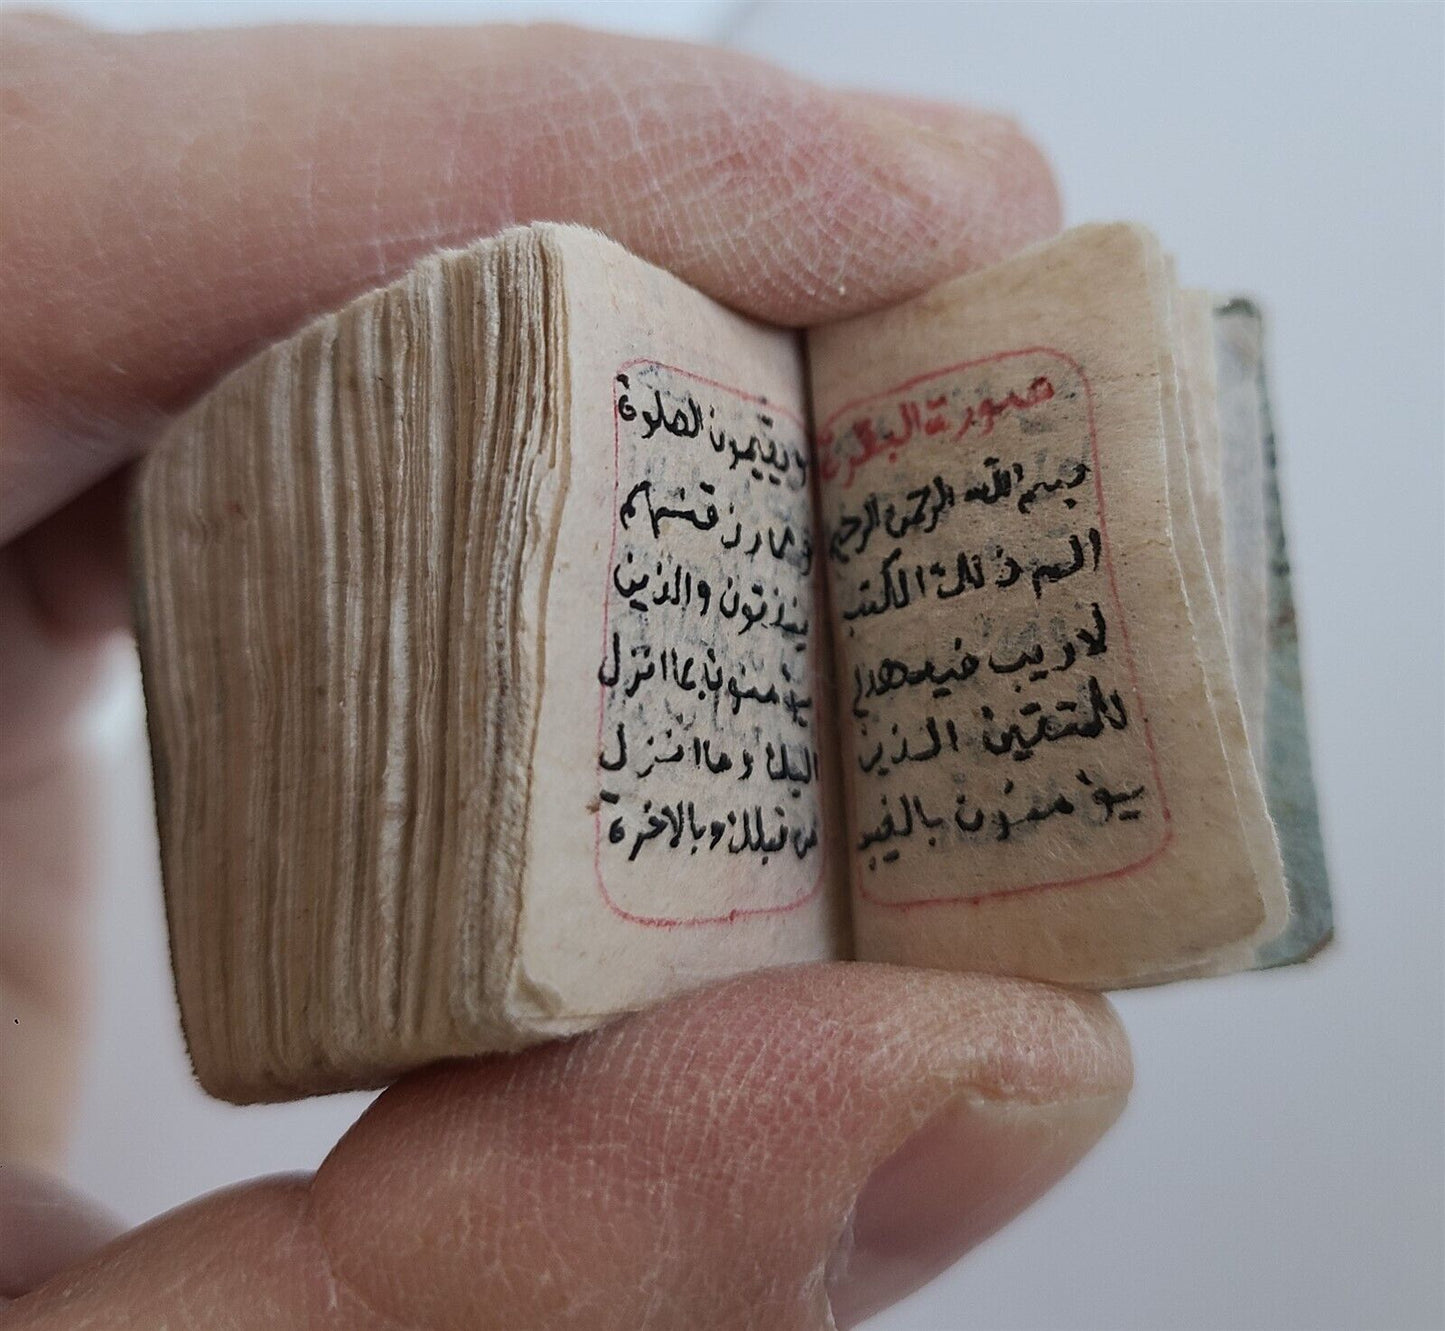 صورة البقرة
بسم الله الرحمن الرحيم
الم ذلك الكتب
لا ريب فيه هدى
للمتقين الذين
يؤمنون بالغيب
و يقيمون الصلوة
و مما رزقنهم
ينفقون والذين
يؤمنون بما انزل
اليك وما انزل
من قبلك وبالاخرة